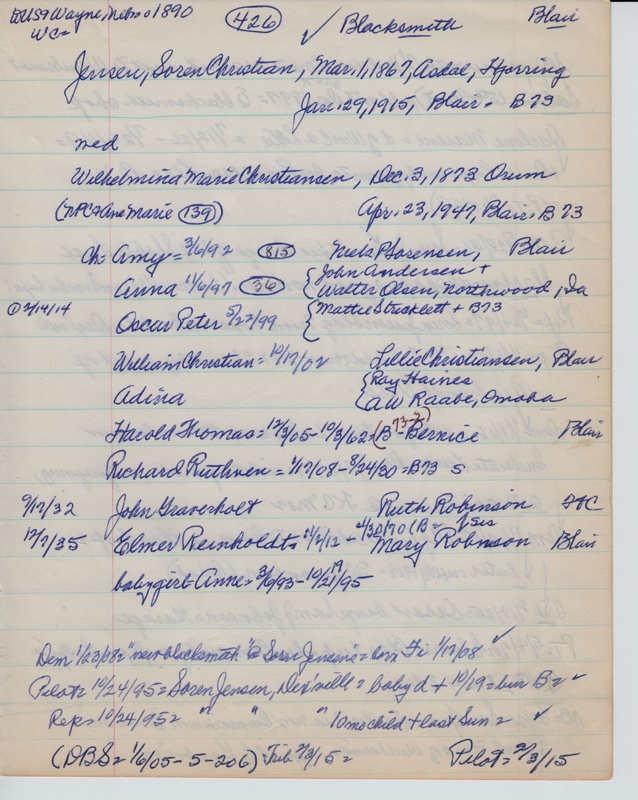 Wayne, Nebr 1890 426 ✓ Blacksmith Blair
WC=
Jensen, Soren Christian, Mar. 1, 1867, Asdal, Hjorring
Jan. 29, 1915, Blair - B73
med
Wilhelmina Marie Christiansen, Dec. 3, 1873 Orum
(NPC & Ane Marie 139) Apr. 23, 1947, Blair. B73
Ch = Amy = 3/6/92 815 Niels P Sorensen, Blair
Anna 11/6/97 36 { John Andersen +
Walter Olsen, Northwood, Ia
2/14/14 Oscar Peter 5/22/99 { Mattie Stricklett + B73
William Christian = 10/17/02 Lillie Christiansen, Blair
Adina { Ray Haines
AW Raabe, Omaha
Harold Thomas = 12/3/05 - 10/3/62 = (B 73-2) - Bernice Blair
Richard Ruthven = 1/17/08 - 8/24/30 = B73 S
9/17/32 John Graverholt Ruth Robinson
12/7/35 Elmer Reinholdt = - 4/30/70 (B = Mary Robinson Blair
sis
baby girl - Anne = 3/6/93 - 10/19/95
Dem 1/23/08 = "new blacksmith" @ Soren Jensen's = born Fri 1/17/08 ✓
Pilot = 10/24/95 = Soren Jensen, = baby d + 10/19 = bur B = ✓
Reps 10/24/95 = " " " 10 mo child + last Sun = ✓
(DBS = 1/6/05 - 5 - 206) Trib 2/3/15 = Pilot = 2/3/15